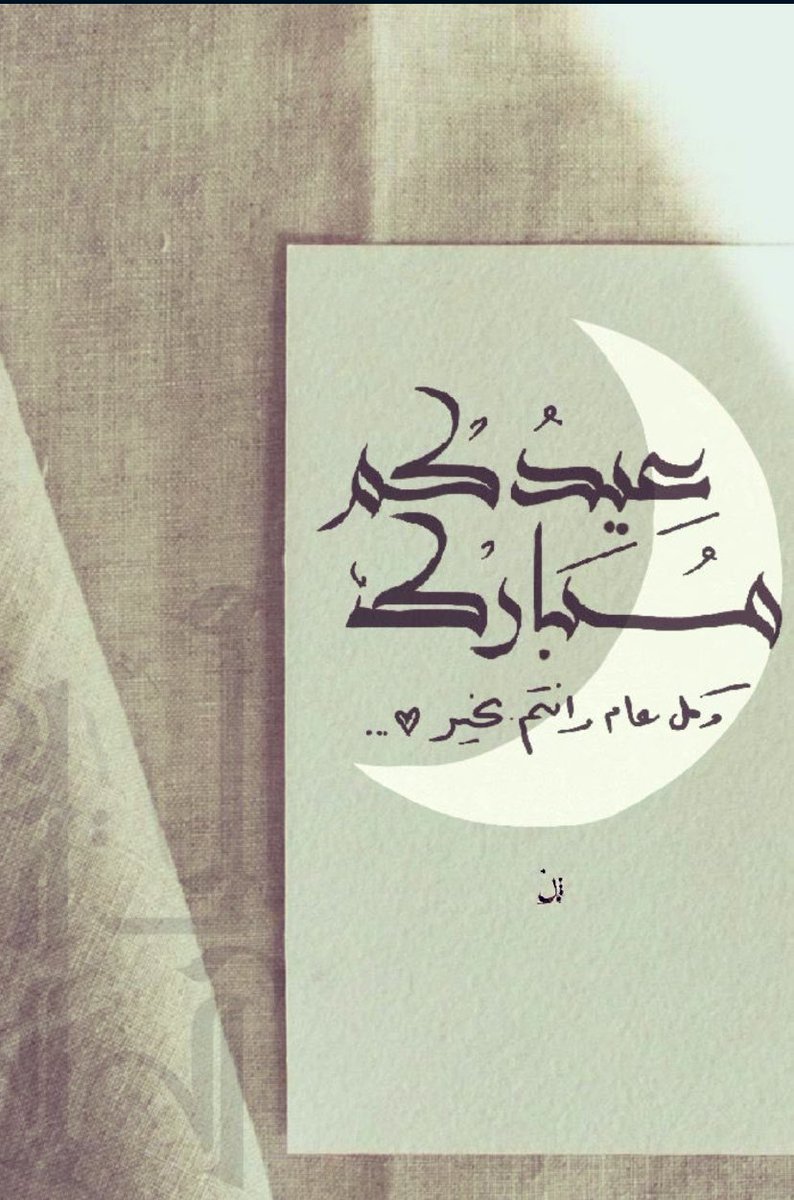 عِيدُكُم
مُبَارك
وَكل عام وانتَم بخير ♡...